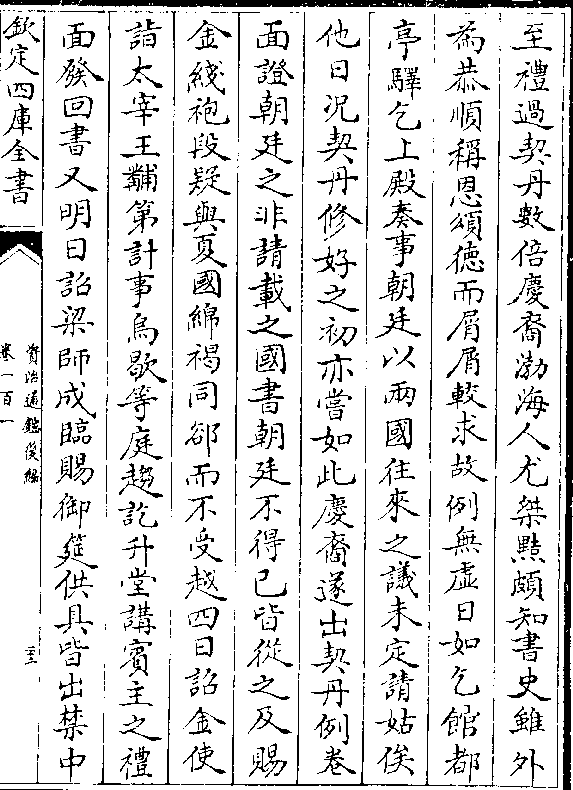 至禮過契丹數倍慶裔渤海人尤桀黠頗知書史雖外
為恭順稱恩頌德而屑屑較求故例無虛日如乞館都
亭驛乞上殿奏事朝廷以兩國往來之議未定請姑俟
他日況契丹修好之初亦嘗如此慶裔遂出契丹例卷
面證朝廷之非請載之國書朝廷不得已皆從之及賜
金綫袍段疑與夏國綿褐同郤而不受越四日詔金使
詣太宰王黼第計事烏歇等庭趨訖升堂講賓主之禮
面發回書又明日詔梁師成臨賜御筵供具皆出禁中
欽定四庫全書
資治通鑑後編
卷一百一